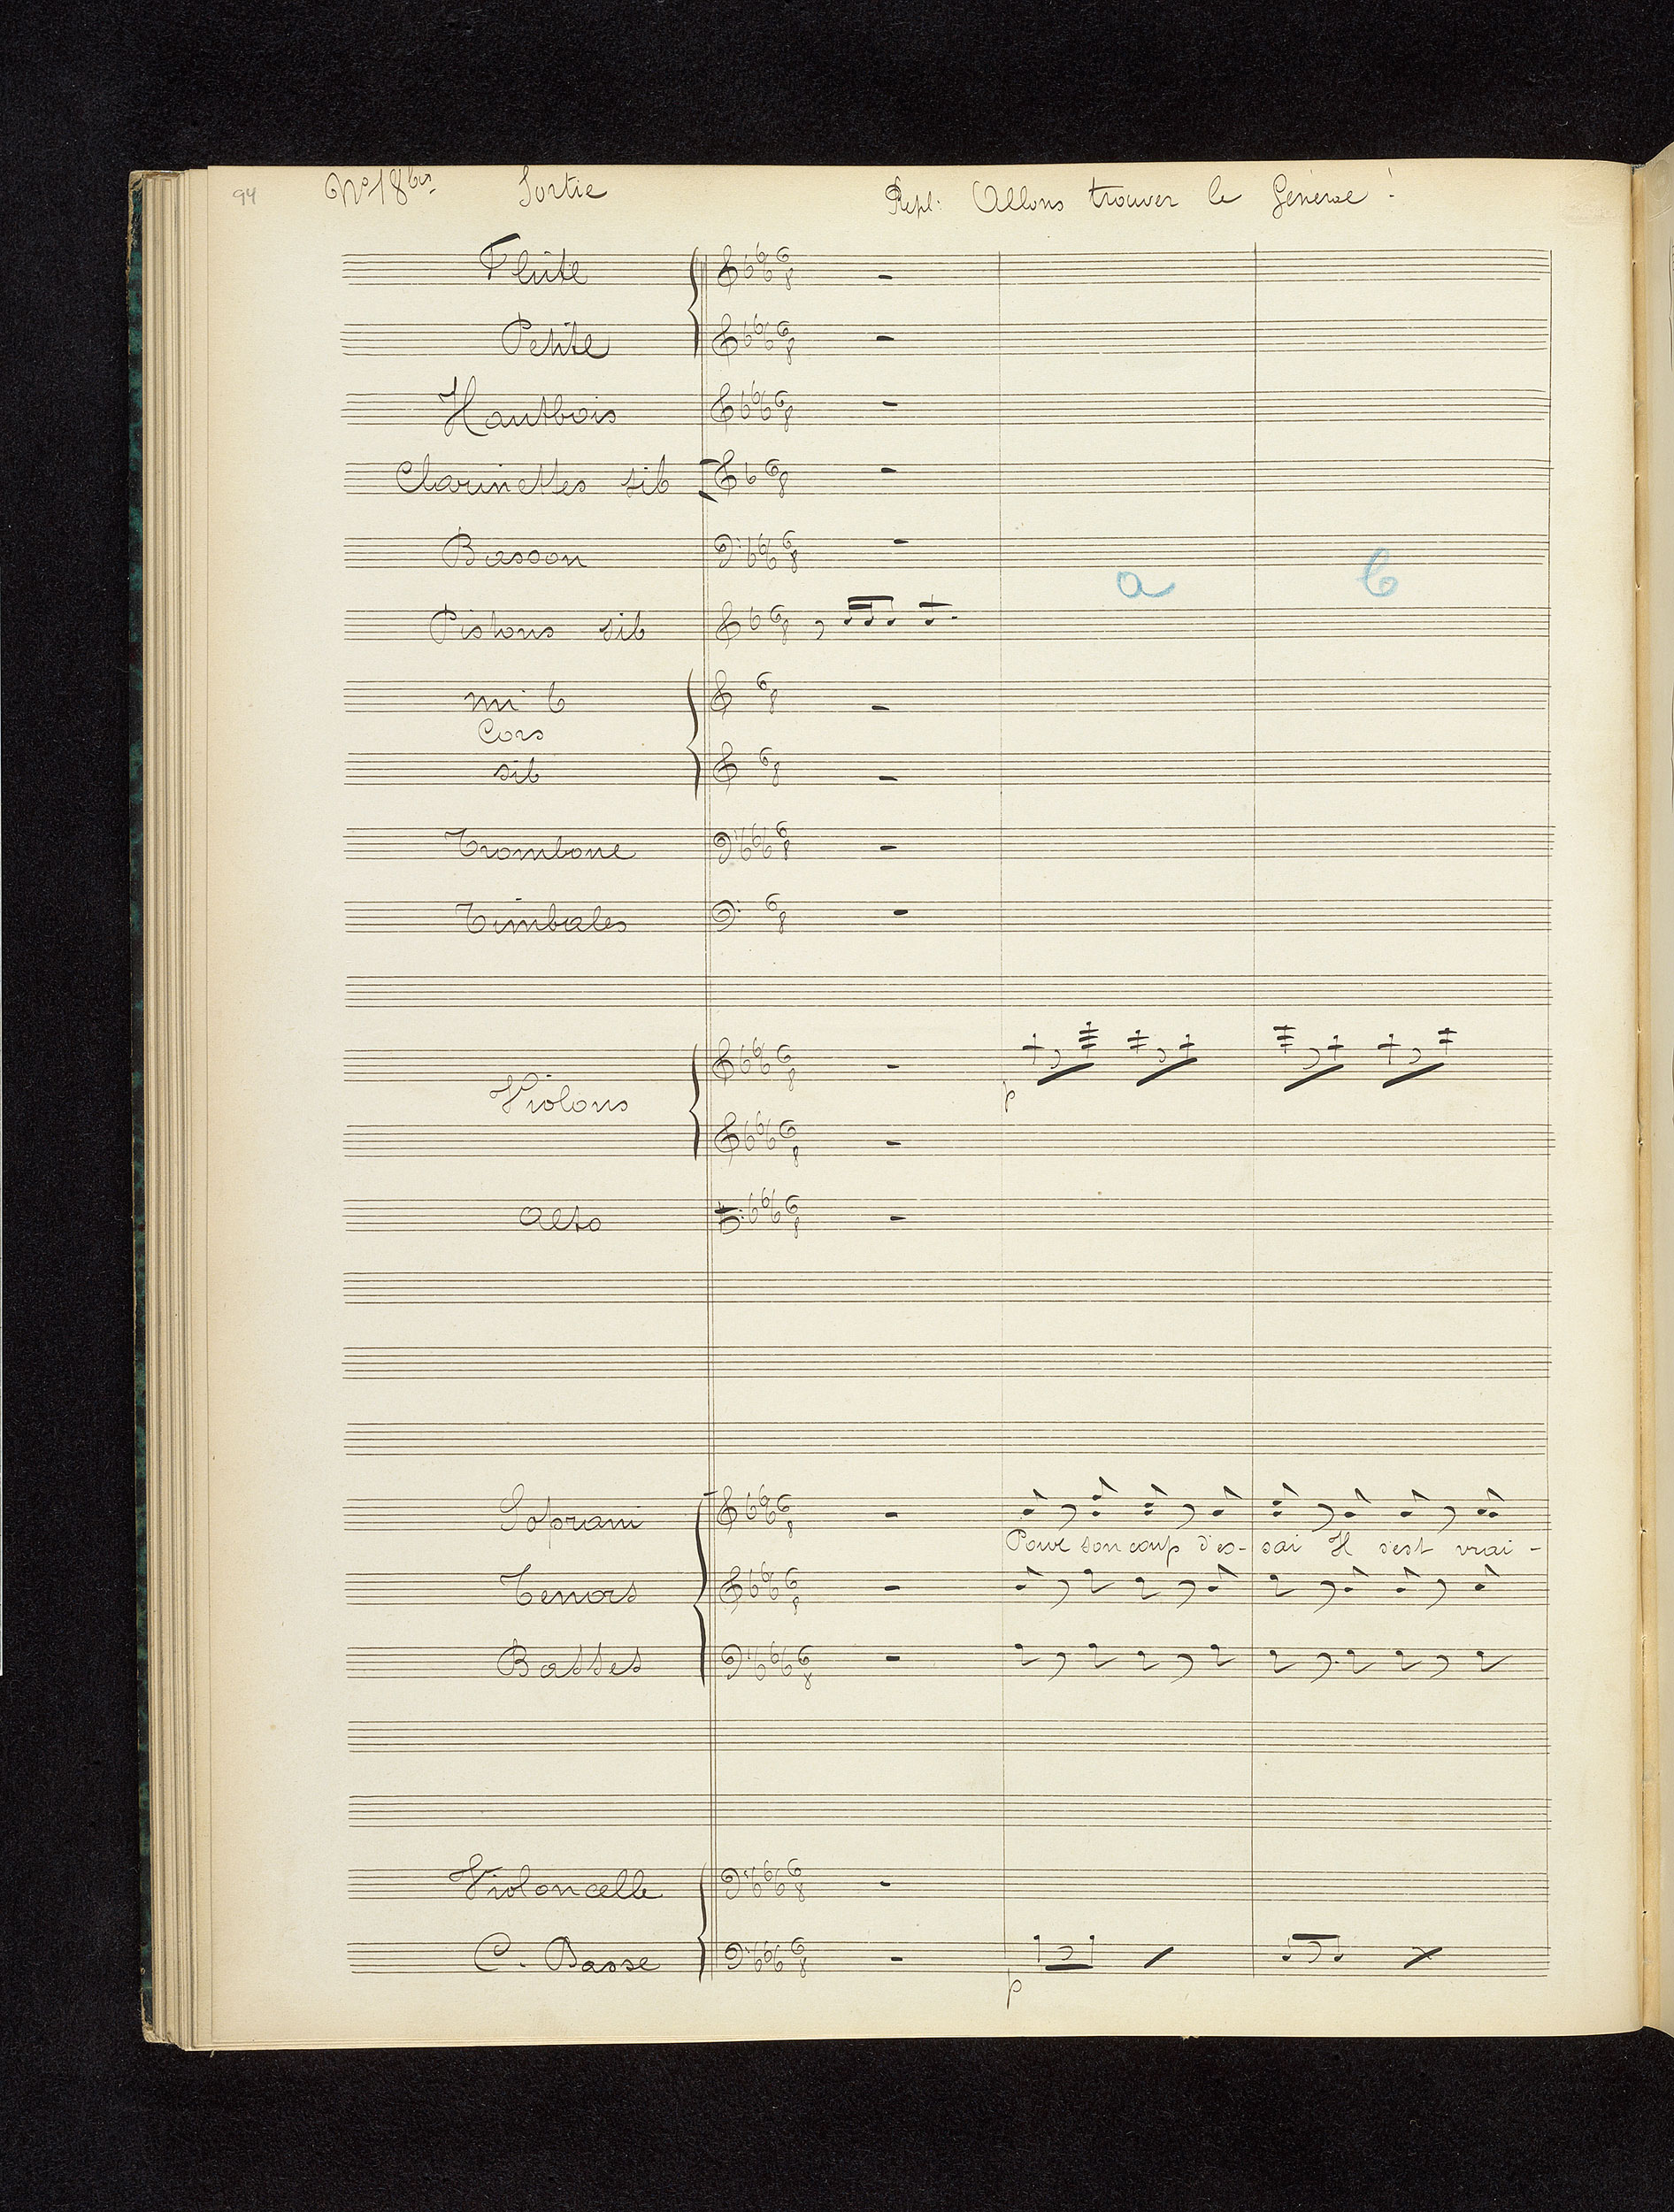 94
No 18 bis Sortie Repl: Allons trouver le Général !
Flûte
Petite
Hautbois
Clarinettes sib
Basson
a b
Pistons sib
mi b
Cors
sib
Trombone
Timbales
p
Violons
Alto
Soprani
Pour son coup d'es- sai Il s'est vrai -
Tenors
Basses
Violoncelle
C. Basse
p